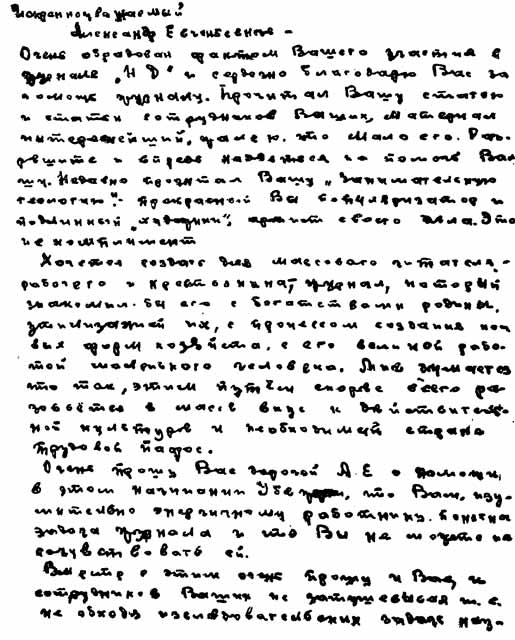 Искренноуважаемый
Александр Евгеньевич –
Очень обрадован фактом Вашего участия в
журнале „НД“ и сердечно благодарю Вас за
помощь журналу. Прочитал Вашу статью
и статьи сотрудников Ваших, материал
интереснейший, жалею, что мало его. Раз-
решите и впредь надеяться на помощь Ва-
шу. Недавно прочитал Вашу „Занимательную
геологию“ – прекрасный Вы популяризатор и
подлинный „художник“, артист своего дела. Это
не комплимент
Хочется создать для массового читателя, –
рабочего и крестьянина, журнал, который
знакомил бы его с богатствами родины,
залежами их, с процессом создания но-
вых форм хозяйства, с его великой рабо-
той маленького человека. Мне думается
что так, этим путём скорее всего ра-
зовьётся в массе вкус к действитель-
ной культуре и необходимый стране
трудовой пафос.
Очень прошу Вас дорогой А.Е о помощи,
в этом начинании Убежден, что Вам, изу-
мительно энергичному работнику. понятна
задача журнала и что Вы не можете не
сочувствовать ей.
Вместе с этим очень прошу и Вас, и
сотрудников Ваших не т.е.
не обходя исследовательских задач нау-